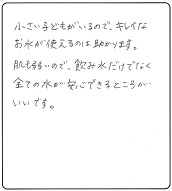 小さい子どもがいるので、キレイな
お水が使えるのは助かります。
肌も弱いので、飲み水だけでなく
全ての水が安心できるところが
いいです。